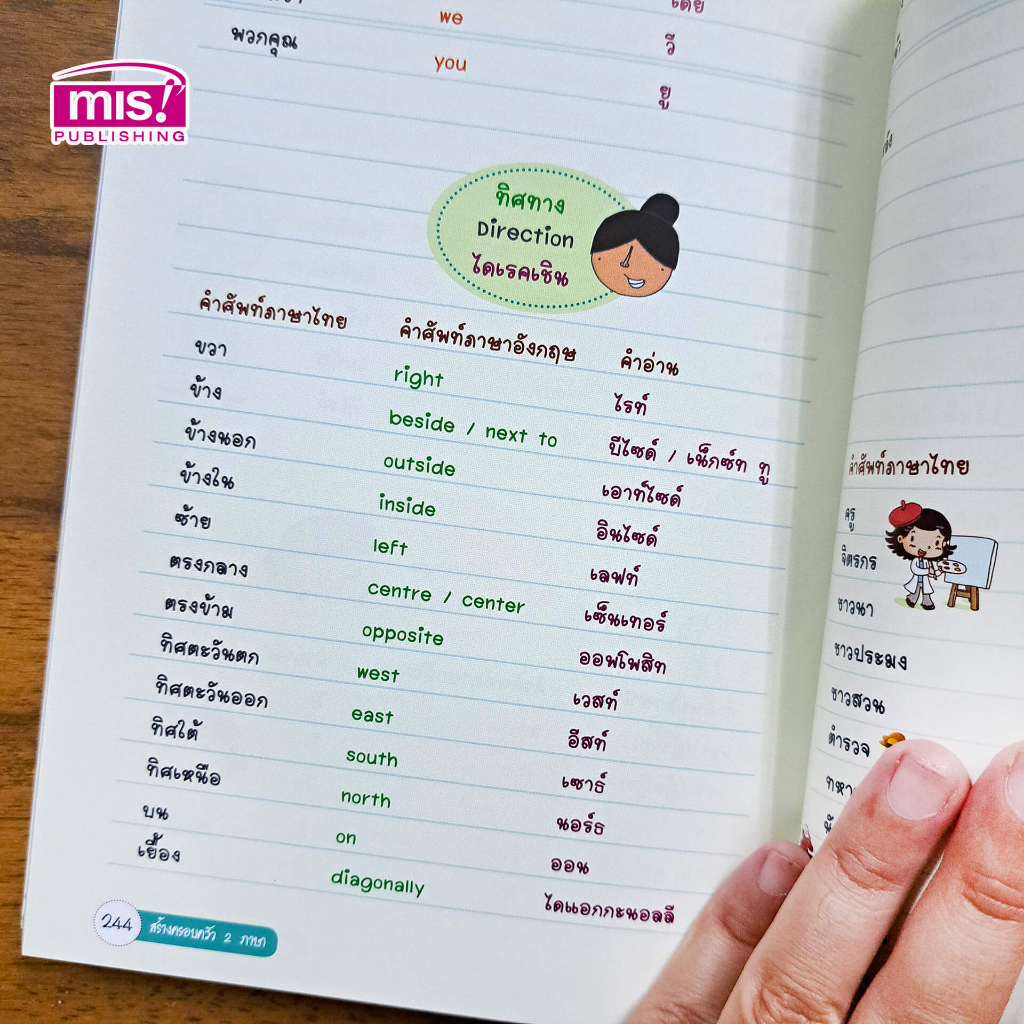 mis!
PUBLISHING
we
พวกคุณ you วี
ยู
ทิศทาง
Direction
ไดเรคเชิน
คำศัพท์ภาษาไทย คำศัพท์ภาษาอังกฤษ คำอ่าน
ขวา right ไรท์
ข้าง beside / next to บีไซด์ / เน็กซ์ท ทู
ข้างนอก outside เอาท์ไซด์
ข้างใน inside อินไซด์
ซ้าย left เลฟท์
ตรงกลาง centre / center เซ็นเทอร์
ตรงข้าม opposite ออพโพสิท
ทิศตะวันตก west เวสท์
ทิศตะวันออก east อีสท์
ทิศใต้ south เซาธ์
ทิศเหนือ north นอร์ธ
บน on ออน
เยื้อง diagonally ไดแอกกะนอลลี
244 สร้างครอบครัว 2 ภาษา
คำศัพท์ภาษาไทย
ครู
จิตรกร
ชาวนา
ชาวประมง
ชาวสวน
ตำรวจ